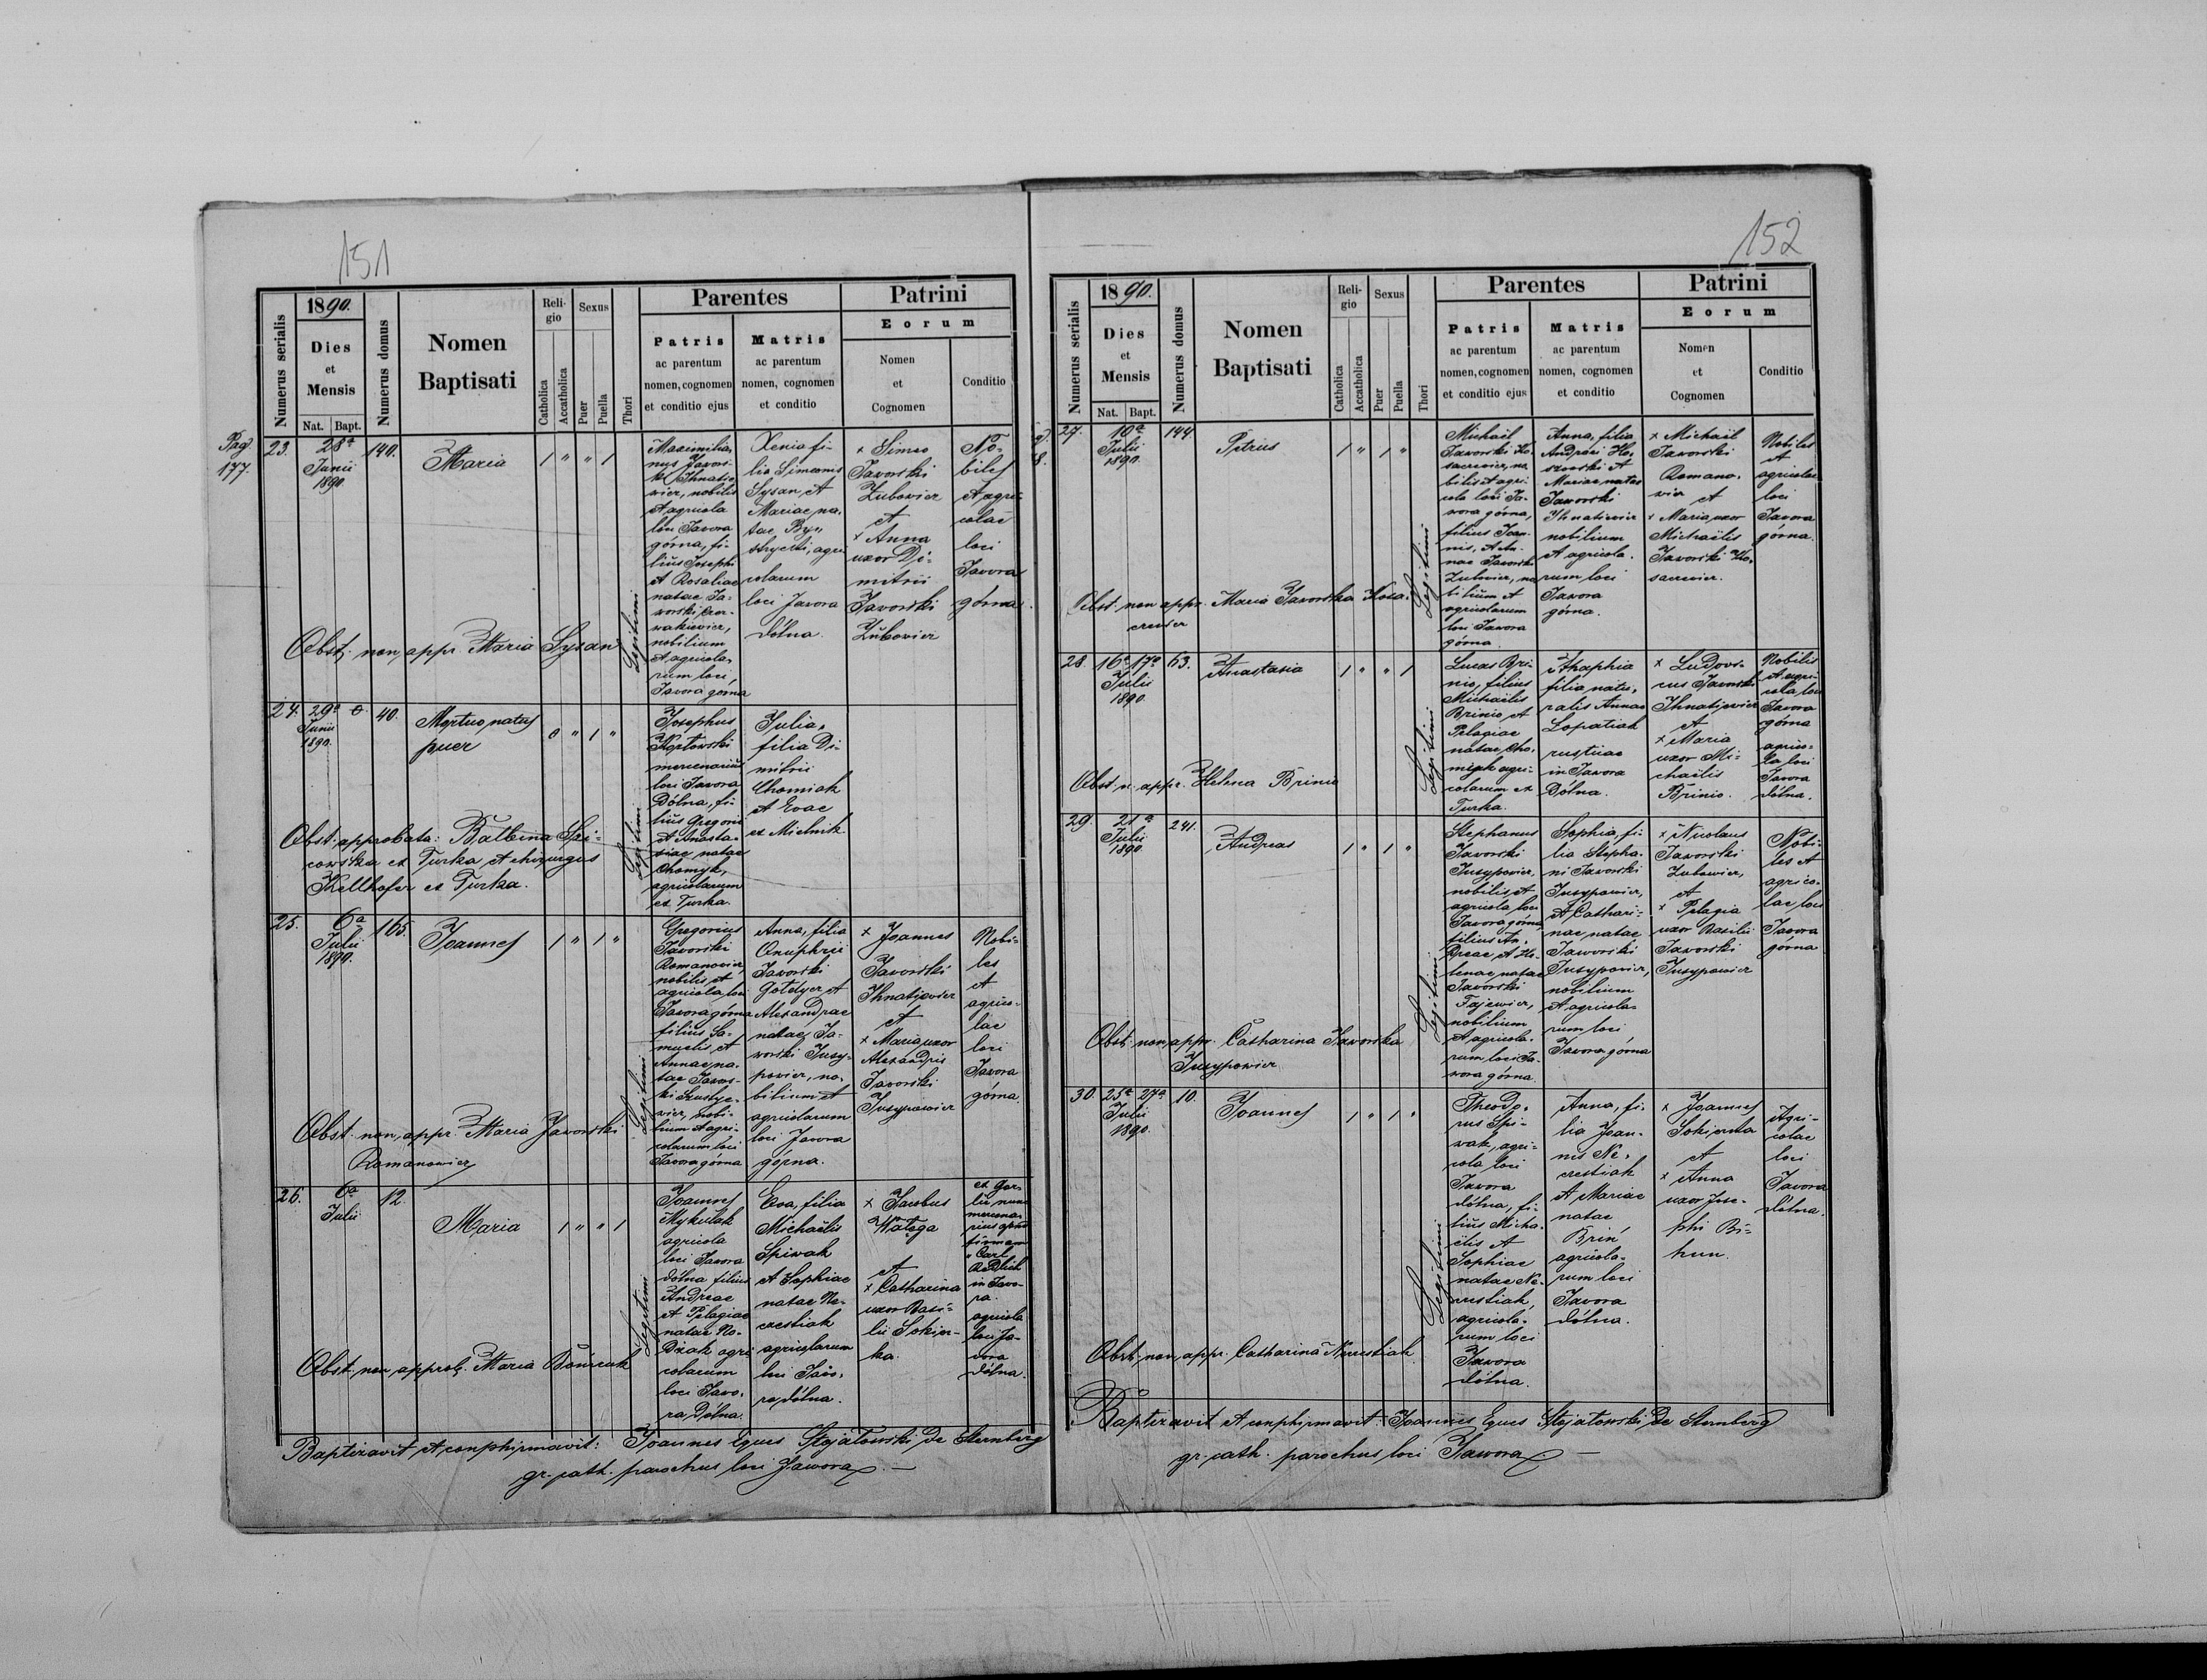 151
1890.
Numerus serialis
Dies
et
Mensis
Nat. Bapt.
Numerus domus
Nomen
Baptisati
Reli-
gio
Catholica
Accatholica
Sexus
Puer
Puella
Thori
Parentes
Patris
ac parentum
nomen, cognomen
et conditio ejus
Matris
ac parentum
nomen, cognomen
et conditio
Patrini
Eorum
Nomen
et
Cognomen
Conditio
Pag.
177.
23.
28a
Junii
1890
140.
Maria
1 " " 1
Legitimi
Maximilia-
nus Javors-
ki Ihnatie-
wicz, nobilis
et agricola
loci Javora
górna, fi-
lius Josephi
et Rosaliae
natae Ja-
vorski
nobilium
et agricola-
rum loci
Javora górna
Xenia fi-
lia Simeonis
Sysan, et
Mariae na-
tae By-
strycki, agri-
colarum
loci Javora
dólna.
+ Simeo
Javorski
Zubowicz
et
+ Anna
uxor Di-
mitrii
Javorski
Zubowicz
No-
biles
et agri-
colae
loci
Javora
górna.
Obst. non appr. Maria Sysan
24.
29a
Junii
1890.
0
40.
Mortuo natus
puer
0 " 1 "
Legitimi
Josephus
mercenarius
loci Javora
Dólna, fi-
lius Gregorii
et Anasta-
siae natae
Chomyk,
agricolarum
ex Turka.
Julia,
filia Di-
mitrii
Chomiak
et Evae
ex Mielnik
Obst. approbata: Balbina Spi-
cowska ex Turka et chirurgus
Kellhofer ex Turka.
25.
6a
Julii
1890.
165.
Joannes
1 " 1 "
Legitimi
Gregorius
Javorski
Romanowicz,
nobilis et
agricola loci
Javora górna
filius Sa-
muelis et
Annae na-
tae Javors-
ki
wicz, nobi-
lium et agri-
colarum loci
Javora górna
Anna, filia
Onuphrii
Javorski
et
Alexandrae
natae Ja-
vorski Jusy-
powicz, no-
bilium et
agricolarum
loci Javora
górna.
+ Joannes
Javorski
Ihnatiewicz
et
+ Maria uxor
Alexandris
Javorski
Jusypowicz
Nobi-
les
et
agrico-
lae
loci
Javora
górna.
Obst. non appr. Maria Javorski
Romanowicz
26.
6a
Julii
12.
Maria
1 " " 1
Legitimi
Joannes
Mykulak
agricola
loci Javora
dólna filius
Andreae
et Pelagiae
natae No-
agri
colarum
loci Javo-
ra Dólna.
Eva, filia
Michaëlis
Spiwak
et Sophiae
natae Ne-
crestiak
agricolarum
loci Javo-
ra dólna.
+ Jacobus
Watęga
et
+ Catharina
uxor Basi-
lii Sokir-
ka.
ex Gor-
lic nunc
mercena-
rius apud
firmam
"Carl
in Javo-
ra.
agricola
loci Ja-
vora
dólna.
Obst. non approb. Maria
Baptizavit et conphirmavit: Joannes Eques Stojatowski de Sternberg
gr. cath. parochus loci Jawora
152
1890.
Numerus serialis
Dies
et
Mensis
Nat. Bapt.
Numerus domus
Nomen
Baptisati
Reli-
gio
Catholica
Accatholica
Sexus
Puer
Puella
Thori
Parentes
Patris
ac parentum
nomen, cognomen
et conditio ejus
Matris
ac parentum
nomen, cognomen
et conditio
Patrini
Eorum
Nomen
et
Cognomen
Conditio
27.
10a
Julii
1890.
144.
Petrus
1 " 1 "
Legitimi
Michaël
Javorski Ko-
sacewicz, no-
bilis et agri-
cola loci Ja-
vora górna,
filius Joan-
nis, et An-
nae Javorski
Zubowicz, no
bilium et
agricolarum
loci Javora
górna
Anna, filia
Andreae Ho-
szowski et
Mariae natae
Javorski
Ihnatiewicz
nobilium
et agricola-
rum loci
Javora
górna.
+ Michaël
Javorski
Romano-
wicz
et
+ Maria uxor
Michaëlis
Javorski Ko-
sacewicz.
Nobiles
et
agricolae
loci
Javora
górna.
Obst. non appr. Maria Javorska Kosa-
cewicz
28.
16a 17a
Julii
1890.
63.
Anastasia
1 " " 1
Legitimi
Lucas Bri-
nio, filius
Michaëlis
Brinio et
Pelagiae
natae Cho-
miak agri-
colarum ex
Turka.
Ahaphia
filia natu-
ralis Annae
Lopatiak
rusticae
in Javora
Dólna.
+ Ludovi-
cus Javorski
Ihnatiewicz
et
+ Maria
uxor Mi-
chaëlis
Brinio.
Nobilis
et agri-
cola loci
Javora
górna
agrico-
la loci
Javora
dólna.
Obst. n. appr. Helena Brinio
29.
21a
Julii
1890.
241.
Andreas
1 " 1 "
Legitimi
Stephanus
Javorski
Jusypowicz,
nobilis et
agricola loci
Javora górna,
filius An-
dreae et He-
lenae natae
Javorski
Fajewicz,
nobilium
et agricola-
rum loci Ja-
vora górna.
Sophia, fi-
lia Stepha-
ni Javorski
Jusypowicz,
et Cathari-
nae natae
Javorski
Jusypowicz,
nobilium
et agricola-
rum loci
Javora górna
+ Nicolaus
Javorski
Zubowicz,
et
+ Pelagia
uxor Basilii
Javorski
Jusypowicz
Nobi-
les et
agrico-
lae loci
Javora
górna
Obst. non appr. Catharina Javorska
Jusypowicz
30.
25a 27a
Julii
1890.
10.
Joannes
1 " 1 "
Legitimi
Theodo-
rus Spi-
wak, agri-
cola loci
Javora
dólna, fi-
lius Micha-
ëlis et
Sophiae
natae Ne-
crestiak,
agricola-
rum loci
Javora
dólna.
Anna, fi-
lia Joan-
nis Ne-
crestiak
et Mariae
natae
Briń
agricola-
rum loci
Javora
dólna.
+ Joannes
Sokierka
et
+ Anna
uxor Jose-
phi Bi-
hun.
Agri-
colae
loci
Javora
dólna.
Obst. non appr. Catharina Necrestiak
Baptizavit et conphirmavit: Joannes Eques Stojatowski de Sternberg
gr. cath. parochus loci Jawora